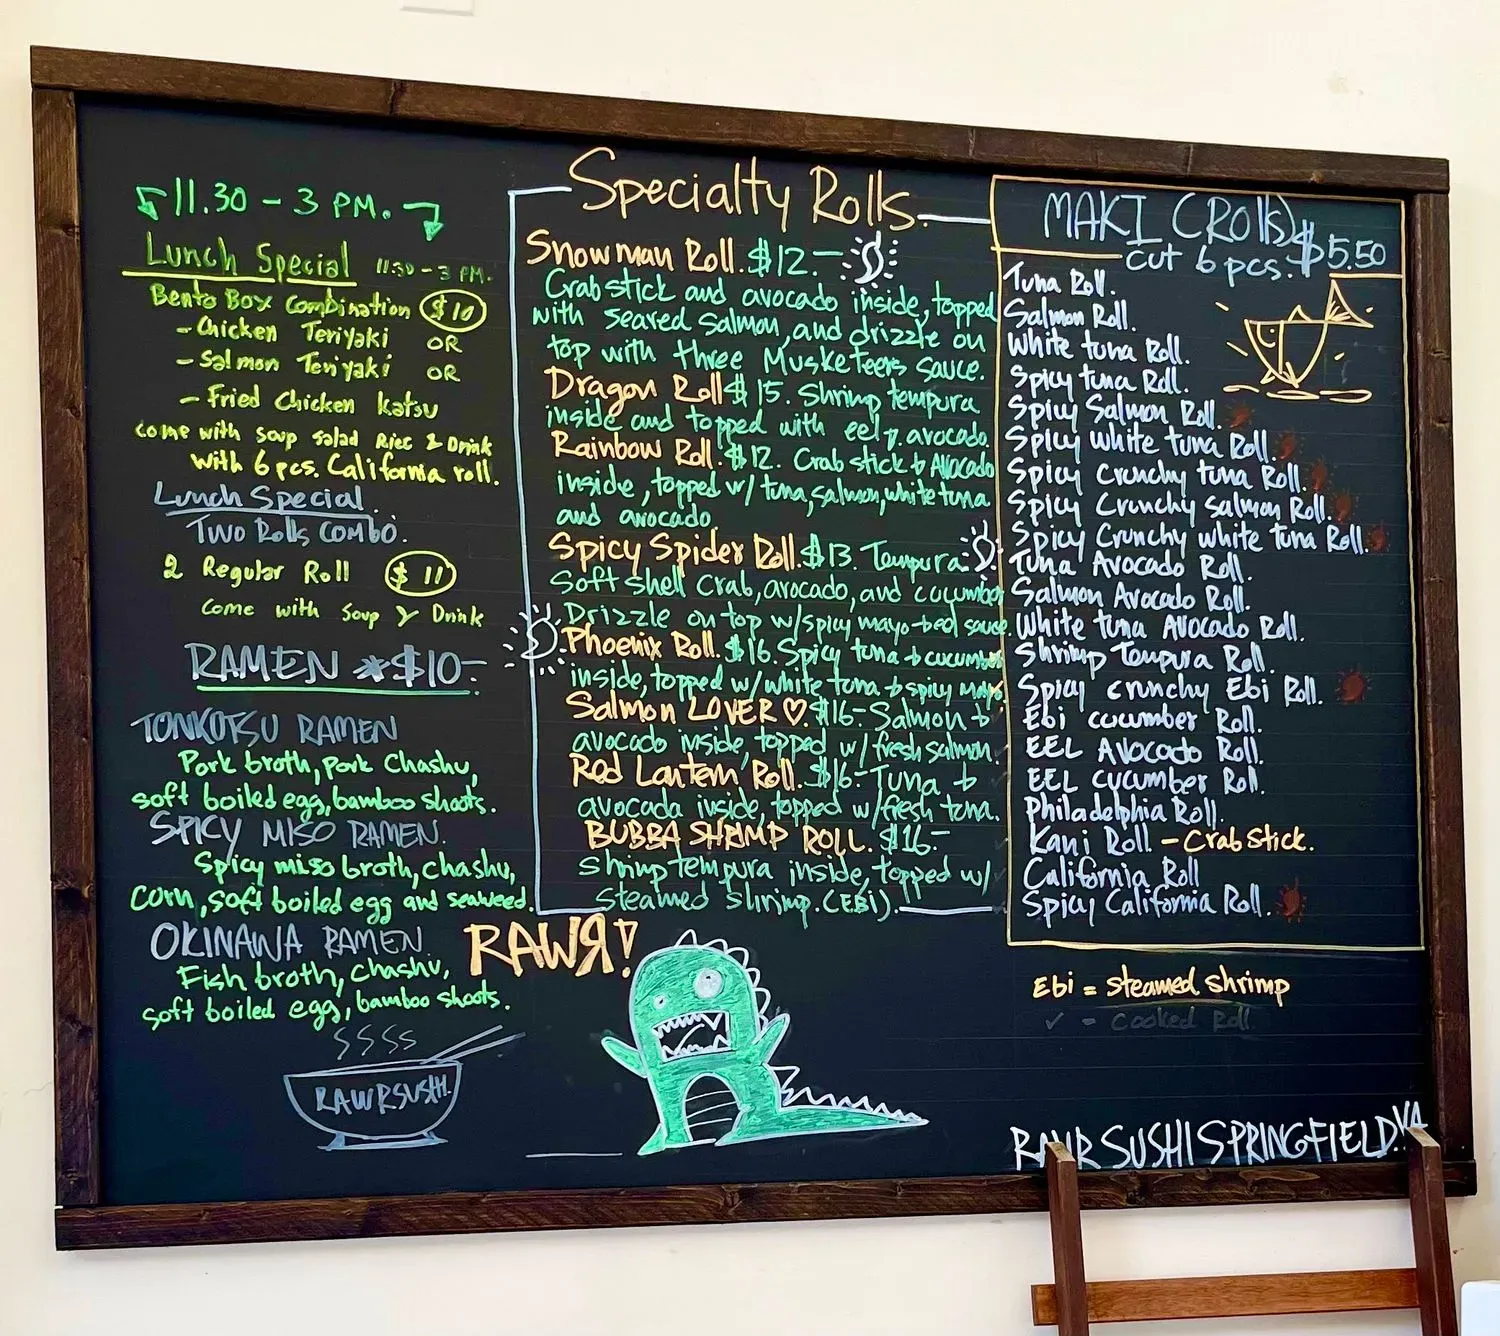 11.30 - 3 PM.
Lunch Special 11:30 - 3 PM.
Bento Box Combination $10
- Chicken Teriyaki OR
- Salmon Teriyaki OR
- Fried Chicken Katsu
come with soup salad Rice & Drink
with 6 pcs. California roll.
Lunch Special
Two Rolls COMBO.
2 Regular Roll $11
come with soup & Drink
RAMEN *$10-
TONKOTSU RAMEN
Pork broth, pork Chashu,
soft boiled egg, bamboo shoots.
SPICY MISO RAMEN.
Spicy miso broth, chashu,
corn, soft boiled egg and seaweed.
OKINAWA RAMEN
Fish broth, chashu,
soft boiled egg, bamboo shoots.
RAWRSUSHI.
Specialty Rolls.
Snowman Roll. $12.-
Crab stick and avocado inside, topped
with seared salmon, and drizzle on
top with three Musketeers sauce.
Dragon Roll $15. Shrimp tempura
inside and topped with eel, avocado.
Rainbow Roll. $12. Crab stick & Avocado
inside, topped w/ tuna, salmon, white tuna
and avocado.
Spicy Spider Roll. $13. Tempura
soft shell crab, avocado, and cucumber
Drizzle on top w/spicy mayo + eel sauce.
Phoenix Roll. $16. Spicy tuna & cucumber
inside, topped w/ white tuna & spicy mayo.
Salmon LOVER ♡. $16- Salmon &
avocado inside, topped w/ fresh salmon.
Red Lantern Roll. $16- Tuna &
avocado inside, topped w/ fresh tuna.
BUBBA SHRIMP ROLL. $16-
shrimp tempura inside, topped w/
steamed shrimp. (EBI).
RAWR!
MAKI (Rolls)
cut 6 pcs. $5.50
Tuna Roll.
Salmon Roll.
White tuna Roll.
Spicy tuna Roll.
Spicy Salmon Roll.
Spicy white tuna Roll.
Spicy Crunchy tuna Roll.
Spicy Crunchy Salmon Roll.
Spicy Crunchy white tuna Roll.
Tuna Avocado Roll.
Salmon Avocado Roll.
White tuna Avocado Roll.
Shrimp Tempura Roll.
Spicy crunchy Ebi Roll.
Ebi cucumber Roll.
EEL Avocado Roll.
EEL cucumber Roll.
Philadelphia Roll.
Kani Roll - Crab Stick.
California Roll
Spicy California Roll.
Ebi = steamed shrimp
✓ - Cooked Roll
RAWR SUSHI SPRINGFIELD.VA